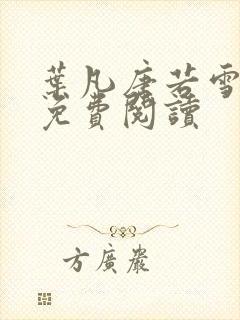 葉凡唐若雪
免費閱讀
方廣嚴